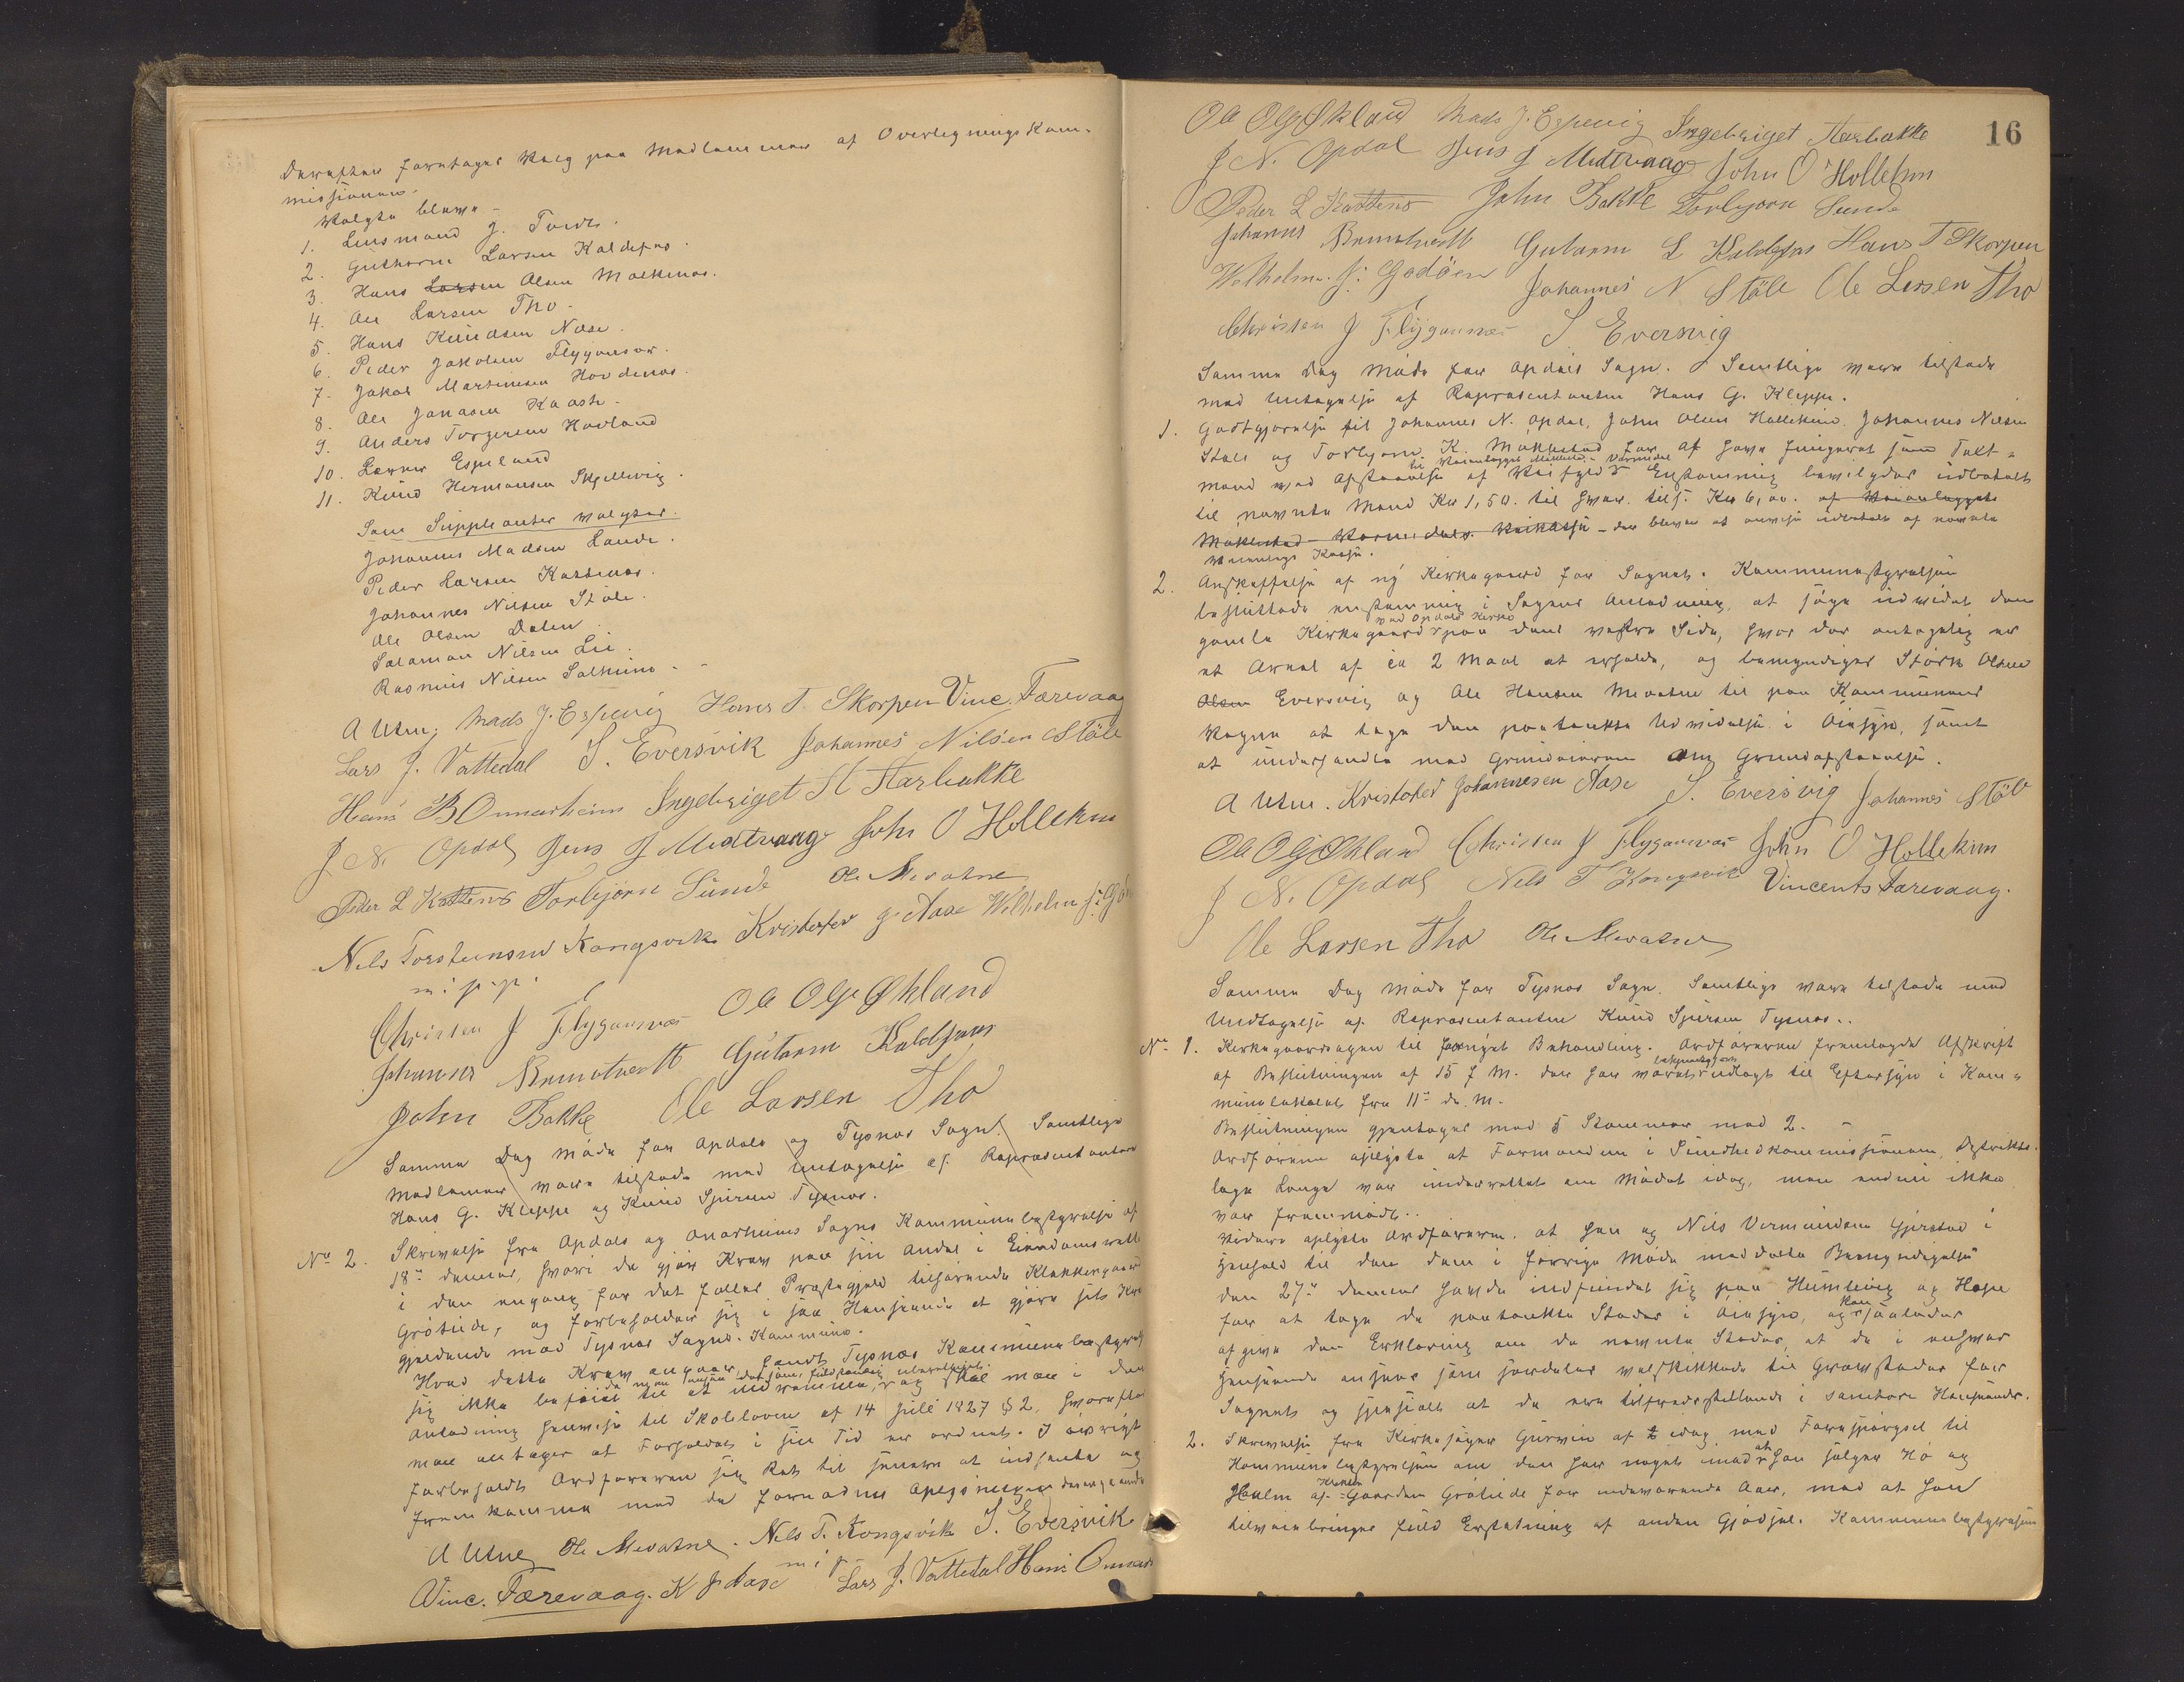 Derefter foretoges Valg paa Medlemmer af Overligningskom-
missionen.
Valgte bleve -
1. Lensmand J. Tveit.
2. Guthorm Larsen Kaldefos.
3. Hans Larsen Olsen Malkenes.
4. Ole Larsen Tho -
5. Hans Knudsen Næse.
6. Peder Jakobsen Flygansvær.
7. Jakob Martinesen Hovdenes.
8. Ole Jonasen Kaaste -
9. Anders Torgersen Hovland
10. Espeland
11. Knud Hermansen Skjellevig.
Som Suppleanter valgtes.
Johannes Madsen Lande.
Peder Larsen Kattenes.
Johannes Nilsen Støle.
Ole Olsen Dalen.
Salamon Nilsen Lie.
Rasmus Nilsen
A Utne, Mads J. Espevig Hans T. Skorpen Vinc. Færevaag
Lars J. Vattedal S. Eversvik Johannes Nilsen Støle
Hans B Onnarheim Ingebriget H Aarbakke
J N. Opdal Jens J Medtvaag John O Hollekim
Peder L Kattenes Torbjørn Sunde Ole Mevatne
Nils Torsteinsen Kongsvik Kristofer J. Aase Wilhelm J. 
m. p. p.
Christen J Flygansvær Ole OlsØkland
Johannes Gutorm Kaldefoss
John Bakke Ole Larsen Tho
Samme Dag Møde for Opdals og Tysnes Sogn. Samtlige
Medlemmer vare tilstede med Undtagelse af Repræsentanterne
Hans G. Kleppe og Knud Sjursen Tysnes.
No 2. Skrivelse fra Opdals og Onarheims Sogns Kommunebestyrelse af
18de dennes, hvori de gjør Krav paa sin Andel i Eiendomsrett
i den engang for det fælles Præstegjeld tilhørende Klokkergaard
Grøteide, og forbeholder sig i saa Henseende at gjøre sit Krav
gjeldende mod Tysnes Sogns Kommune.
Hvad dette Krav angaar, fandt Tysnes Kommunebestyrelse
da man anser det som fuldstændig ubeføiet
sig ikke beføiet til at indrømme, og skal man i den
Anledning henvise til Skoleloven af 14 Juli 1827 § 2, hvorefter
man antager at Forholdet i sin Tid er ordnet. I øvrigt
forbeholdt Ordføreren sig Ret til senere at indsende og
fremkomme med de fornødne Oplysninger desangaaende
A Utne Ole Mevatne. Nils T. Kongsvik S. Eversvik
m. p.
Vinc. Færevaag. K J Aase Lars J. Vattedal Hans 
16
Ole OlsØkland Mads J. Espevig Ingebriget Aarbakke
J N. Opdal Jens J Medtvaag John O Hollekim
Peder L Kattenes John Bakke Torbjørn Sunde
Johannes Gutorm L Kaldefos Hans T Skorpen
Wilhelm J: Godøen Johannes N Støle Ole Larsen Tho
Christen J Flygansvær S Eversvig
Samme Dag Møde for Opdals Sogn. Samtlige vare tilstede
med Undtagelse af Repræsentanten Hans G. Kleppe.
1. Godtgjørelse til Johannes N. Opdal, John Olsen Hollekim, Johannes Nilsen
Støle og Torbjørn K. Møklestad for at have fungeret som Takst-
til Veianlægget Møklestad - Vermedal
mænd ved Afstaaelse af Veifyld. Enstemmig bevilgedes udbetalt
til nævnte Mænd Kr 1,50. til hver. tils. Kr 6,00. af Veianlæggets
Møklestad - Vermedals Veikasse - der bliver at anvise udbetalt af nævnte
Veianlægs Kasse.
2. Anskaffelse af ny Kirkegaard for Sognet. Kommunestyrelsen
besluttede enstemmig i Sagens Anledning, at søge udvidet den
ved Opdals Kirke
gamle Kirkegaard paa dens vestre Side, hvor der antagelig er
et Areal af ca 2 Maal at erholde, og bemyndiges Størk Olsen
Olsen Eversvig og Ole Hansen Mevatne til paa Kommunens
Vegne at tage den paatænkte Udvidelse i Øiesyn, samt
at underhandle med Grundeieren om Grundafstaaelse.
A Utne. Kristofer Johannesen Aase S. Eversvig Johannes Støle
Ole OlsØkland Christen J Flygansvær John O Hollekim
J N. Opdal Nils T Kongsvik Vincents Færevaag.
Ole Larsen Tho Ole Mevatne
Samme Dag Møde for Tysnes Sogn. Samtlige vare tilstede med
Undtagelse af Repræsentanten Knud Sjursen Tysnes..
No 1. Kirkegaardsagen til fornyet Behandling. Ordføreren fremlagde Afskrift
bekjendtgjort
af Beslutningen af 15 f. M. der har været udlagt til Eftersyn i Kom-
munelokalet fra 11te ds. M.
Beslutningen gjentoges med 5 Stemmer mod 2. -
Ordføreren oplyste at Formanden i Sundhedskommissionen, Distrikts-
læge Lange var underrettet om Mødet idag, men endnu ikke
var fremmødt..
Videre oplyste Ordføreren, at han og Nils Vermundsen Gjerstad i
Henhold til den dem i forrige Møde meddelte Bemyndigelse
den 27de dennes havde indfundet sig paa Humlevig og Hope
for at tage de paatænkte Steder i Øiesyn, og kan saaledes
afgive den Erklæring om de nævnte Steder, at de i enhver
Henseende ansees som særdeles velskikkede til Gravsteder for
Sognet og specielt at de ere tilfredsstillende i sanitær Henseende.
2. Skrivelse fra Kirkesanger Gurvin af idag med Forespørgsel til
Kommunebestyrelsen om den har noget imod at han sælger Hø og
Halm af Gaarden Grøteide for indeværende Aar, mod at han
tilveiebringer fuld Erstatning af anden Gjødsel. Kommunebestyrelsen